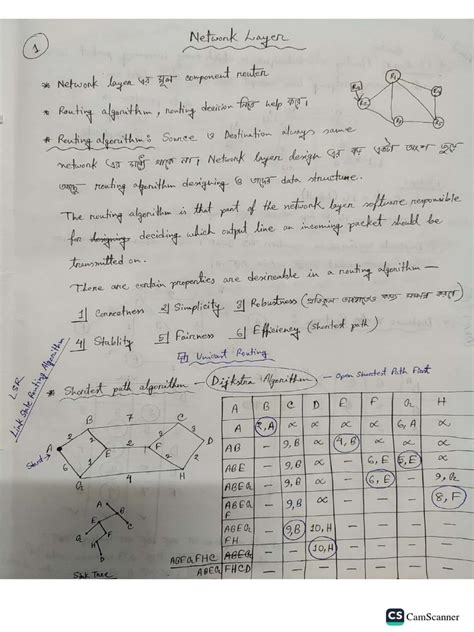 1
Network Layer
* Network layer এর মূল component router
* Routing algorithm, routing decision নিতে help করে।
* Routing algorithm: Source ও Destination always same
network এর মধ্যে থাকে না। Network layer design এর বড় একটা অংশ জুড়ে
আছে routing algorithm designing ও তাদের data structure.
The routing algorithm is that part of the network layer software responsible
for designing deciding which output line an incoming packet should be
transmitted on.
There are certain properties are desireable in a routing algorithm —
1] Correctness 2] Simplicity 3] Robustness
4] Stablity 5] Fairness 6] Efficiency (Shortest path)
Unicast Routing
LSR
Link State Routing Algorithm
* Shortest path algorithm — Dijkstra Algorithm — Open Shortest Path First
A B C D E F G H
A 2,A α α α α 6,A α
AB – 9,B α 4,B α α
ABE – 9,B α – 6,E 5,E α
ABEG – 9,B α – 6,E – 9,G
ABEGF – 9,B α – – – 8,F
ABEGFH – 9,B 10,H – – – –
ABEGFHC ABEG – – 10,H – – – –
ABEGFHCD – – – – – – –
B 7 C
2 2 3 3
A E 2 F D
Start
6 1 2 2
G 4 H
A B C
E
G F
H
D
Sink Tree
CS CamScanner